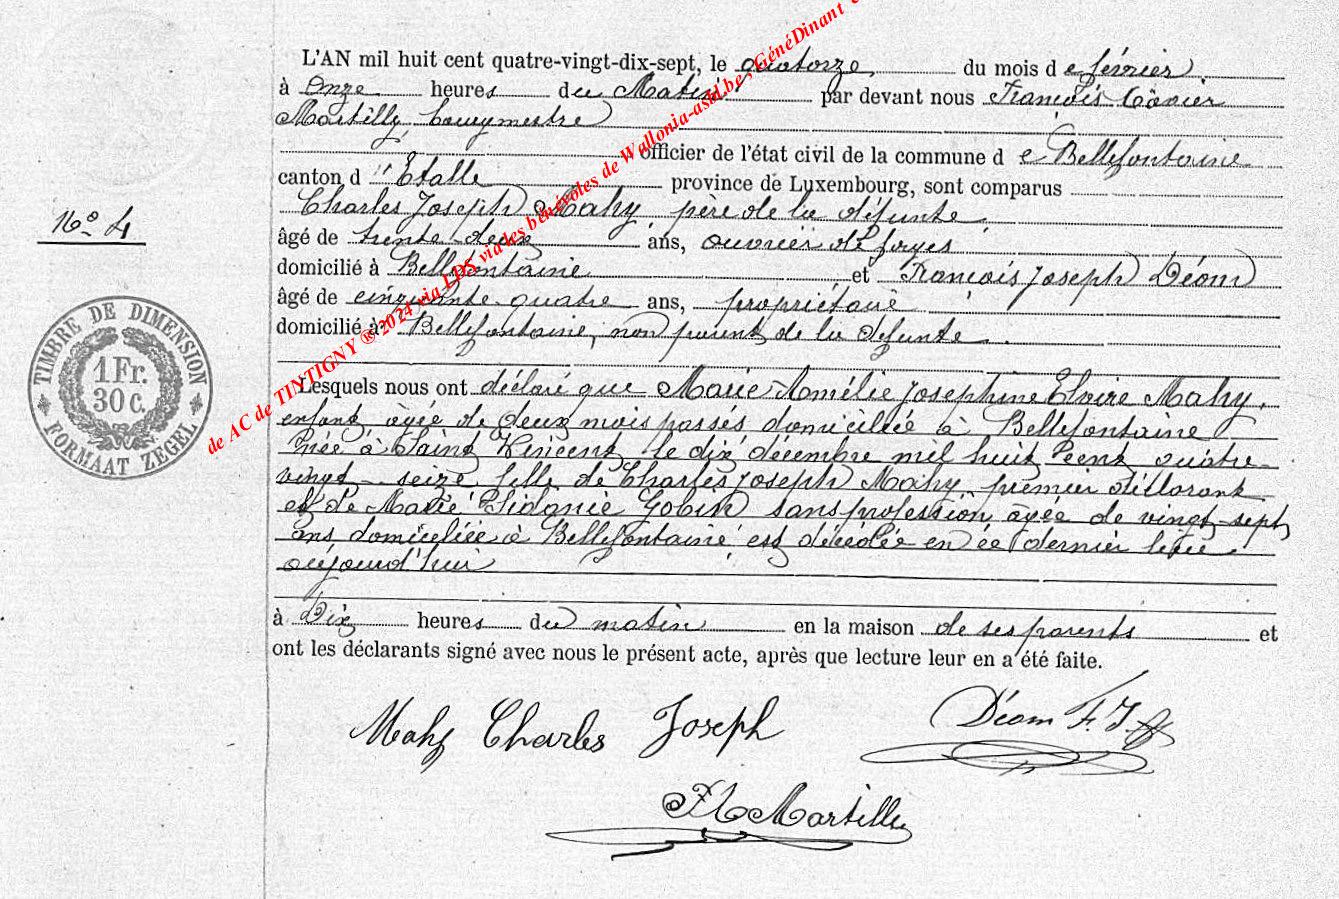 L'AN mil huit cent quatre-vingt-dix-sept, le quatorze du mois de février
à Onze heures du Matin, par devant nous François Xavier
Martilly, bourgmestre
officier de l'état civil de la commune de Bellefontaine
canton d'Etalle province de Luxembourg, sont comparus
Charles Joseph Mahy père de la défunte,
âgé de trente-deux ans, ouvrier de forges
domicilié à Bellefontaine et François Joseph Déom
âgé de cinquante-quatre ans, propriétaire
domicilié à Bellefontaine, non parent de la défunte.
Lesquels nous ont déclaré que Marie Amélie Josephine Elvire Mahy,
enfant, âgée de deux mois passés domiciliée à Bellefontaine
née à Saint Vincent le dix décembre mil huit cent quatre-
vingt-seize fille de Charles Joseph Mahy, premier déclarant
et de Marie Sidonie Gobin sans profession, âgée de vingt-sept
ans domiciliée à Bellefontaine est décédée en ce dernier lieu
aujourd'hui
à Dix heures du matin en la maison de ses parents et
ont les déclarants signé avec nous le présent acte, après que lecture leur en a été faite.
Mahy Charles Joseph
Déom F. J.
FX Martilly
No 4
TIMBRE DE DIMENSION
1 Fr.
30 c.
FORMAAT ZEGEL
de AC de TINTIGNY ® 2024 via LDS via les bénévoles de Wallonia-asbl.be, GénéDinant